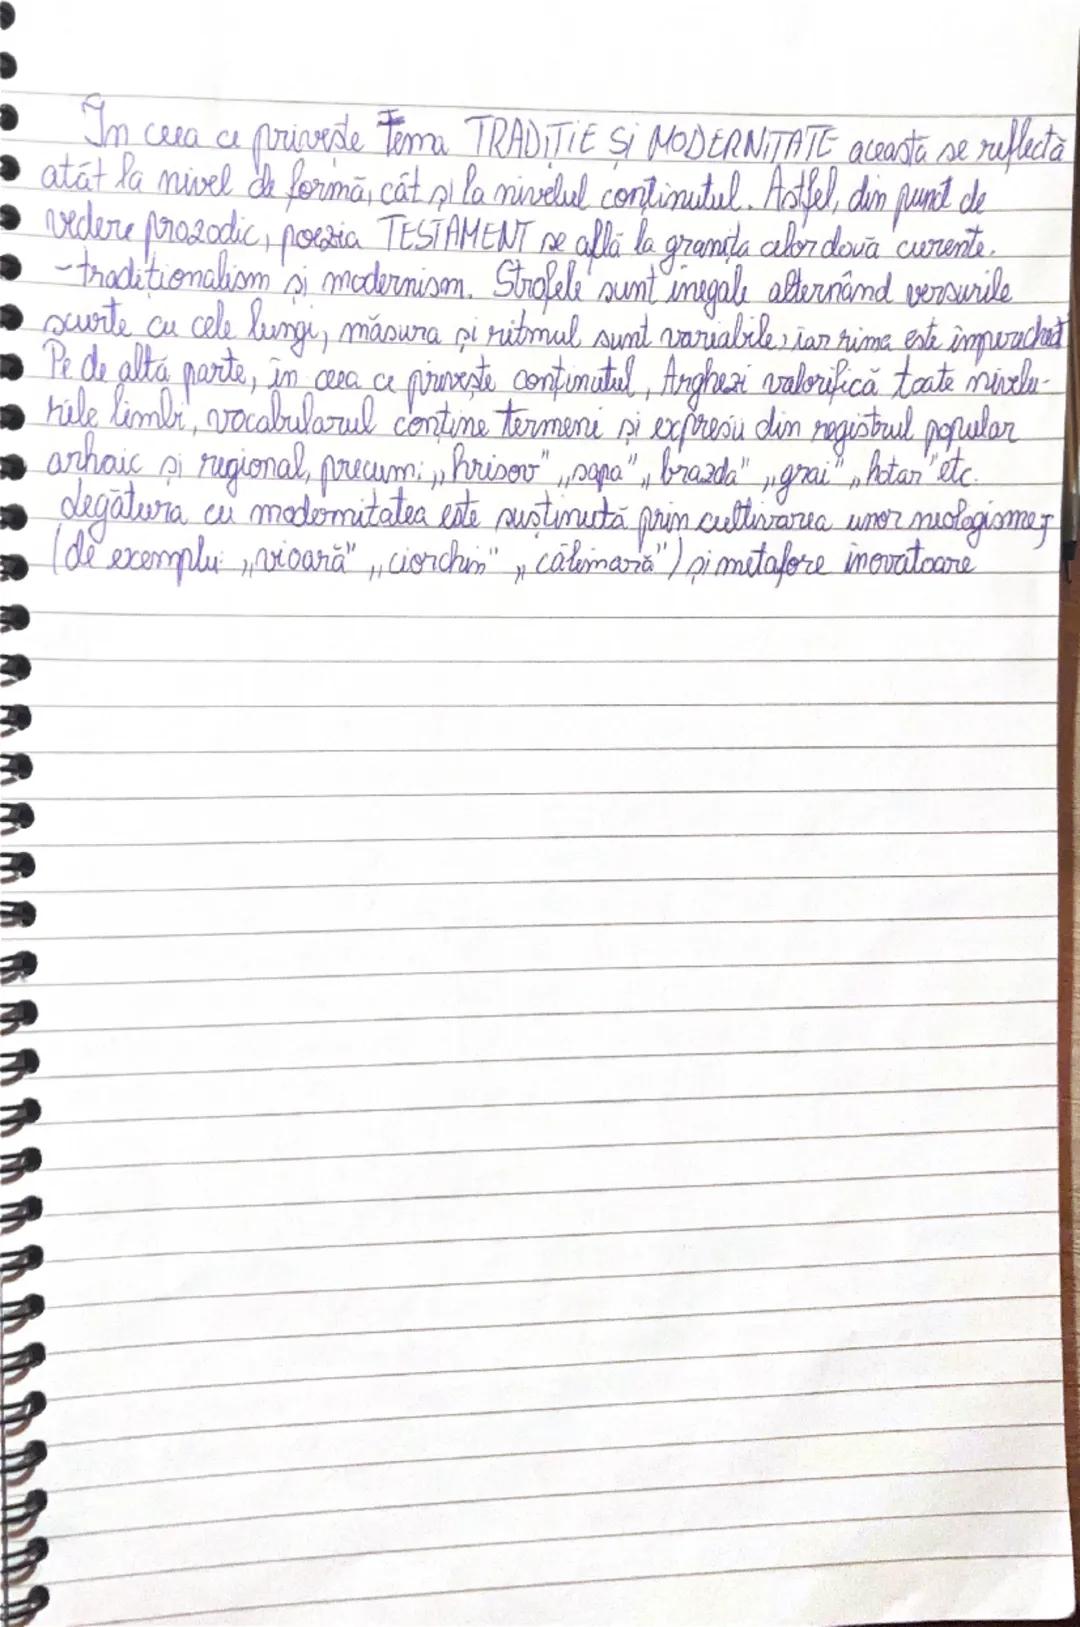 In ceea ce privește Tema TRADIȚIE ȘI MODERNITATE aceasta se reflectă
atât la nivel de formă, cât și la nivelul conținutul. Astfel, din punct de
vedere prozodic, poezia TESTAMENT se află la granița celor două curente.
-traditionalism și modernism. Strofele sunt inegale alternând versurile
scurte cu cele lungi, măsura și ritmul sunt variabile, iar rima este împerechat
Pe de altă parte, în ceea ce privește conținutul, Arghezi valorifică toate nivelu-
rile limbi, vocabularul conține termeni și expresii din registrul popular
arhaic și regional, precum: „hrisov" „sapa" „brazda" „grai" „hotar" etc.
Legătura cu modernitatea este susținută prin cultivarea unor neologisme
(de exemplu: „vioară" „ciorchin" „călimară") și metafore inovatoare